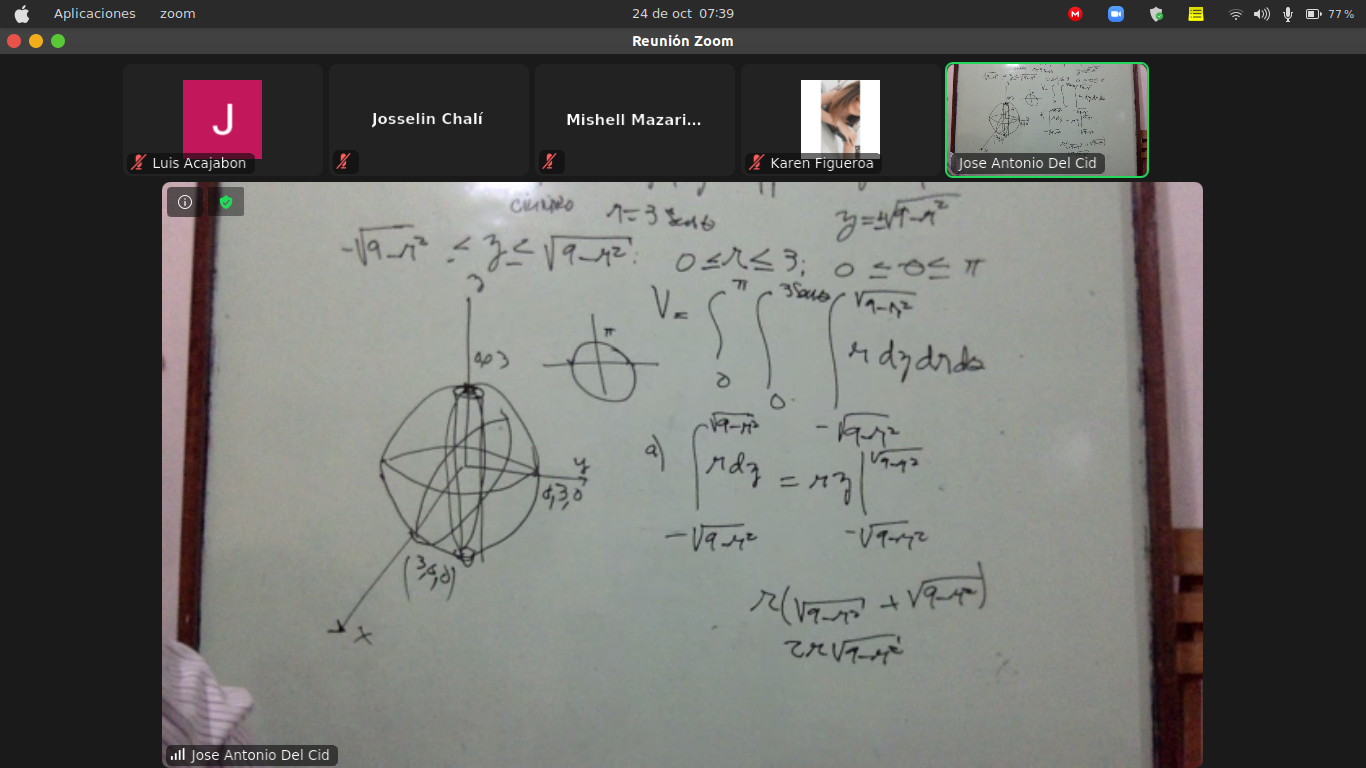 Aplicaciones zoom 24 de oct 07:39 77 %
Reunión Zoom
J
Luis Acajabon
Josselin Chalí
Mishell Mazari...
Karen Figueroa
Jose Antonio Del Cid
r = 3 senθ
z = ±√9-r²
-√9-r² ≤ z ≤ √9-r² ; 0 ≤ r ≤ 3; 0 ≤ θ ≤ π
V = ∫₀^π ∫₀^3senθ ∫_-√9-r²^√9-r² r dz dr dθ
π
0,0,3
y
0,3,0
(3,0,0)
x
a) ∫_-√9-r²^√9-r² r dz = rz |_-√9-r²^√9-r²
r(√9-r² + √9-r²)
2r√9-r²
Jose Antonio Del Cid